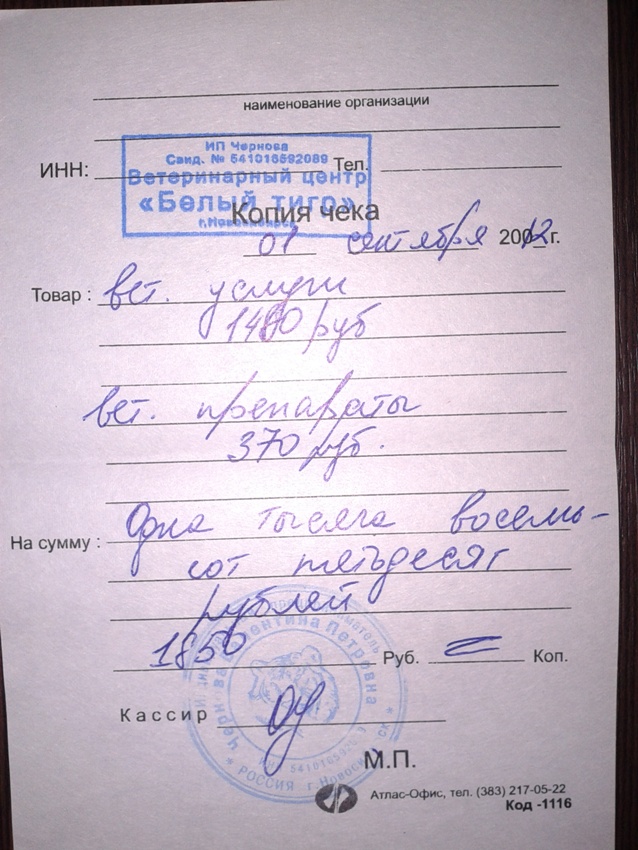 наименование организации
ИП Чернова
Свид. № 541016592089
ИНН: Тел.
Ветеринарный центр
«Белый тигр»
г.Новосибирск
Копия чека
01 сентября 20012г.
Товар : вет. услуги
1480 руб
вет. препараты
370 руб.
Одна тысяча восемь-
На сумму :
сот пятьдесят
рублей
1850 Руб. = Коп.
Кассир
Валентина Петровна
РОССИЯ г.Новосибирск
М.П.
Атлас-Офис, тел. (383) 217-05-22
Код -1116